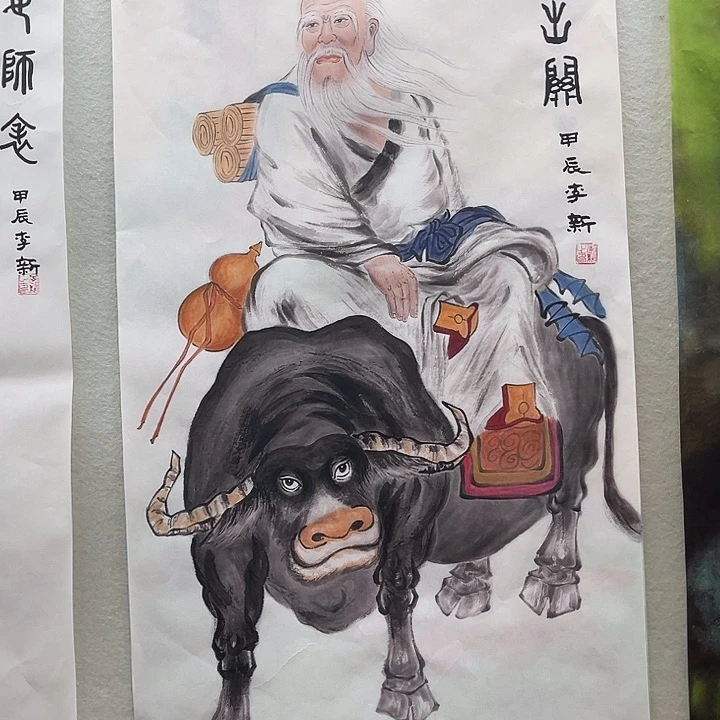 出關
甲辰李新
師
甲辰李新